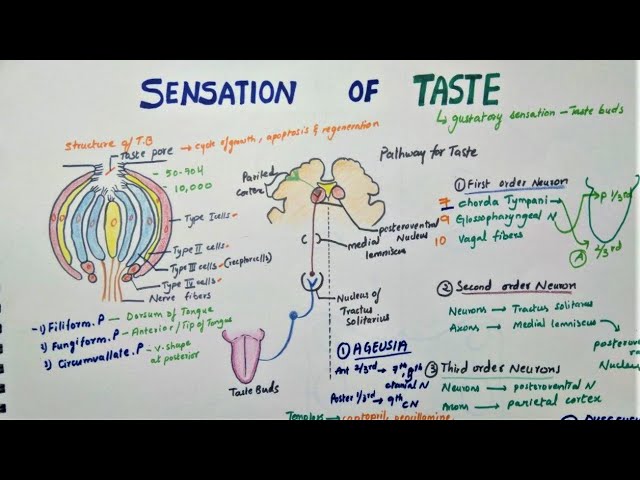 SENSATION OF TASTE
↳ gustatory sensation - Taste buds
Structure of T.B
→ cycle of growth, apoptosis & regeneration
Taste pore
- 50-70μ
- 10,000
Type I cells
Type II cells
Type III cells (receptor cells)
Type IV cells
Nerve fibers
1) Filiform. P - Dorsum of Tongue
2) Fungiform. P - Anterior / Tip of Tongue
3) Circumvallate. P - V-shape
at posterior
Taste Buds
Pathway for Taste
Parital
cortex
posteroventral
Nucleus
medial
lemniscus
Nucleus of
Tractus
Solitarius
① First order Neuron
7 chorda Tympani
9 Glossopharyngeal N
10 Vagal fibers
P 1/3rd
A 2/3rd
② Second order Neuron
Neurons → Tractus solitarius
Axons → Medial lemniscus
posterove
Nucle
③ Third order Neurons
Neurons → posteroventral N
Axons → parietal cortex
① AGEUSIA
Ant 2/3rd → 7th,
cranial N
Poster 1/3rd → 9th
CN
captopril, pencillamine